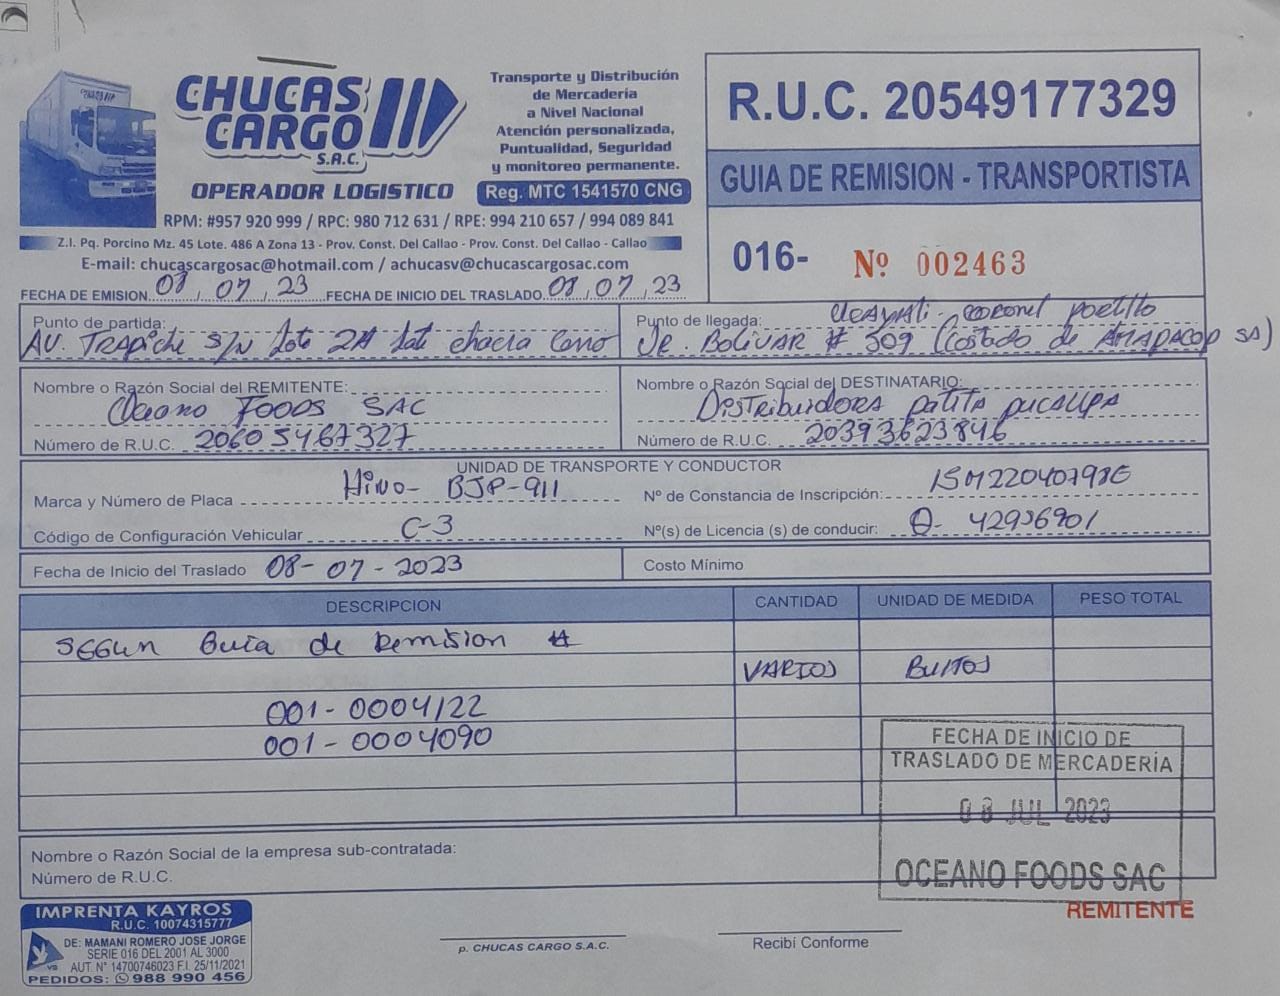 CHUCAS CARGO S.A.C.
OPERADOR LOGISTICO
Transporte y Distribución
de Mercadería
a Nivel Nacional
Atención personalizada,
Puntualidad, Seguridad
y monitoreo permanente.
Reg. MTC 1541570 CNG
RPM: #957 920 999 / RPC: 980 712 631 / RPE: 994 210 657 / 994 089 841
Z.I. Pq. Porcino Mz. 45 Lote. 486 A Zona 13 - Prov. Const. Del Callao - Prov. Const. Del Callao - Callao
E-mail: chucascargosac@hotmail.com / achucasv@chucascargosac.com
R.U.C. 20549177329
GUIA DE REMISION - TRANSPORTISTA
016- Nº 002463
FECHA DE EMISION 08, 07, 23 FECHA DE INICIO DEL TRASLADO 08, 07, 23
Punto de partida:
AV. TRAPiche S/N lote 2A chacra Cerro
Punto de llegada: UCAYALi - CORONEl PORTillo
JR. BOLIVAR # 509 (Costado de AMAPACOP SA)
Nombre o Razón Social del REMITENTE:
Oceano FOODS SAC
Número de R.U.C. 20605467327
Nombre o Razón Social del DESTINATARIO:
DISTRibuidORA PATITA PUCALLPA
Número de R.U.C. 20393623846
UNIDAD DE TRANSPORTE Y CONDUCTOR
Marca y Número de Placa HiNO- BJP-911
Nº de Constancia de Inscripción: 15M22040798E
Código de Configuración Vehicular C-3
Nº(s) de Licencia (s) de conducir: Q- 42956901
Fecha de Inicio del Traslado 08-07-2023
Costo Mínimo
DESCRIPCION CANTIDAD UNIDAD DE MEDIDA PESO TOTAL
SEGUN Guia de Remision #
VARIOS BULTOS
001-0004122
001-0004090
FECHA DE INICIO DE
TRASLADO DE MERCADERÍA
08 JUL 2023
OCEANO FOODS SAC
Nombre o Razón Social de la empresa sub-contratada:
Número de R.U.C.
REMITENTE
IMPRENTA KAYROS
R.U.C. 10074315777
DE: MAMANI ROMERO JOSE JORGE
SERIE 016 DEL 2001 AL 3000
AUT. N° 14700746023 F.I. 25/11/2021
PEDIDOS: 988 990 456
p. CHUCAS CARGO S.A.C.
Recibí Conforme